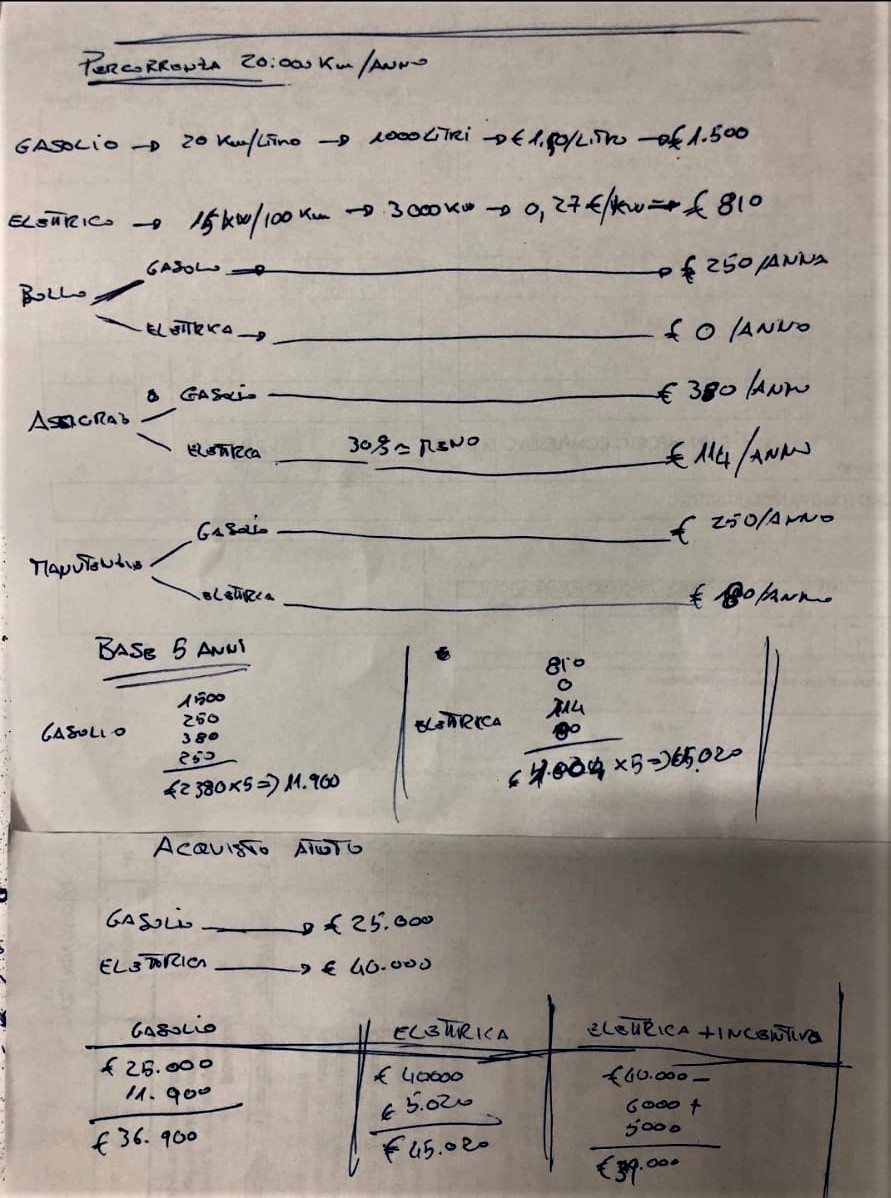 PERCORRENZA 20.000 Km/ANNO
GASOLIO → 20 Km/Litro → 1000 LITRI → € 1,50/LITRO → € 1.500
ELETTRICO → 15 kW/100 Km → 3000 KW → 0,27 €/kW → € 810
GASOLIO → € 250/ANNO
BOLLO
ELETTRICA → € 0 /ANNO
GASOLIO € 380/ANNO
ASSICURAZ
ELETTRICA 30% ≃ MENO € 114/ANNO
GASOLIO € 250/ANNO
MANUTENZIO
ELETTRICA € 80/ANNO
BASE 5 ANNI
GASOLIO
1500
250
380
250
€ 2380 x 5 => 11.900
ELETTRICA
810
0
114
80
€ 1.004 x 5 => 5.020
ACQUISTO AUTO
GASOLIO → € 25.000
ELETTRICA → € 40.000
GASOLIO ELETTRICA ELETTRICA + INCENTIVO
€ 25.000 € 40000 € 40.000 –
11.900 € 5.020 6000 +
5000
€ 36.900 € 45.020 € 39.000